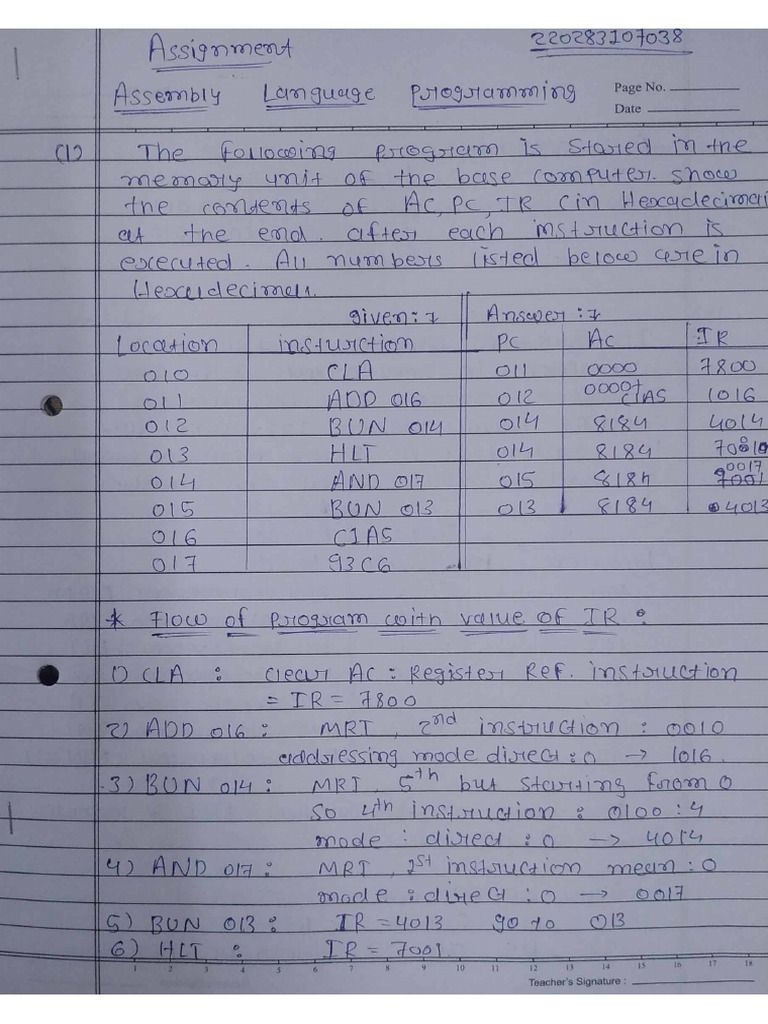 Assignment 220283107038
Assembly Language Programming Page No.
Date
(1) The following program is stored in the
memory unit of the base computer. show
the contents of AC, PC, IR (in Hexadecimal
at the end. after each instruction is
executed. All numbers listed below are in
Hexadecimal.
given:- Answer:-
Location insturction PC AC IR
010 CLA 011 0000 7800
011 ADD 016 012 0000+ C1A5 1016
012 BUN 014 014 8184 4014
013 HLT 014 8184
014 AND 017 015 8184 0017
015 BUN 013 013 8184 4013
016 C1A5
017 93C6
* Flow of program with value of IR :
1) CLA : Clear AC : Register Ref. instruction
= IR = 7800
2) ADD 016 : MRI, 2nd instruction : 0010
addressing mode direct : 0 → 1016.
3) BUN 014 : MRI, 5th but starting from 0
so 4th instruction : 0100 : 4
mode : direct : 0 → 4014
4) AND 017 : MRI, 1st instruction mean : 0
mode : direct : 0 → 0017
5) BUN 013 : IR = 4013 go to 013
6) HLT : IR = 7001.
1 2 3 4 5 6 7 8 9 10 11 12 13 14 15 16 17 18
Teacher's Signature :